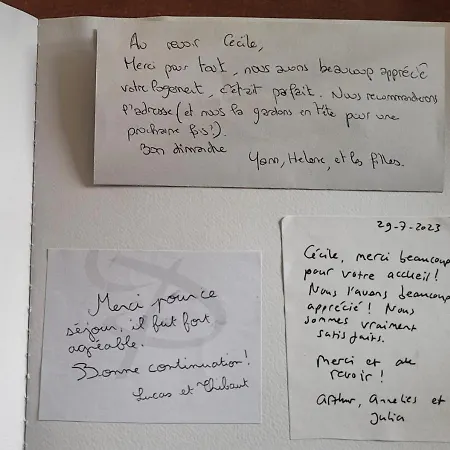 Au revoir Cécile,
Merci pour tout, nous avons beaucoup apprécié
votre logement, c'était parfait. Nous recommanderons
l'adresse (et nous la gardons en tête pour une
prochaine fois!).
Bon dimanche
Yann, Helene, et les filles.
29-7-2023
Cécile, merci beaucoup
pour votre accueil!
Nous l'avons beaucoup
apprécié! Nous
sommes vraiment
satisfaits.
Merci et au
revoir!
Arthur, Annelies et
Julia
Merci pour ce
séjour, il fut fort
agréable.
Bonne continuation!
Lucas et Thibaut